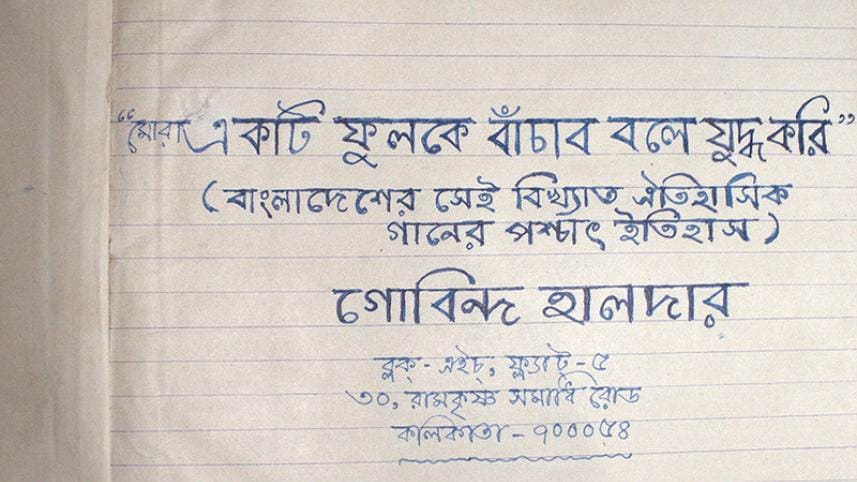 “মোরা একটি ফুলকে বাঁচাব বলে যুদ্ধ করি”
(বাংলাদেশের সেই বিখ্যাত ঐতিহাসিক
গানের পশ্চাৎ ইতিহাস)
গোবিন্দ হালদার
ব্লক্ - এইচ্, ফ্ল্যাট্ - ৫
৩০, রামকৃষ্ণ সমাধি রোড
কলিকাতা - ৭০০০৫৪